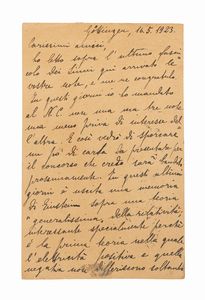 Göttingen, 16.5.1923.
Carissimi amici,
Ho letto sopra l'ultimo fasci
colo dei Lincei qui arrivato le
vostre note, e me ne congratulo.
In questi giorni io ho mandato
al N.C. non una ma tre note
una meno priva di interesse del
l'altra. E così vedrò di sporcare
un po' di carta da presentare per
il concorso che credo sarà bandito
prossimamente. In questi ultimi
giorni è uscita una memoria
di Einstein sopra una teoria
generalissima della relatività,
interessante specialmente perché
è la prima teoria nella quale
l'elettricità positiva e quella
negativa non differiscono soltanto